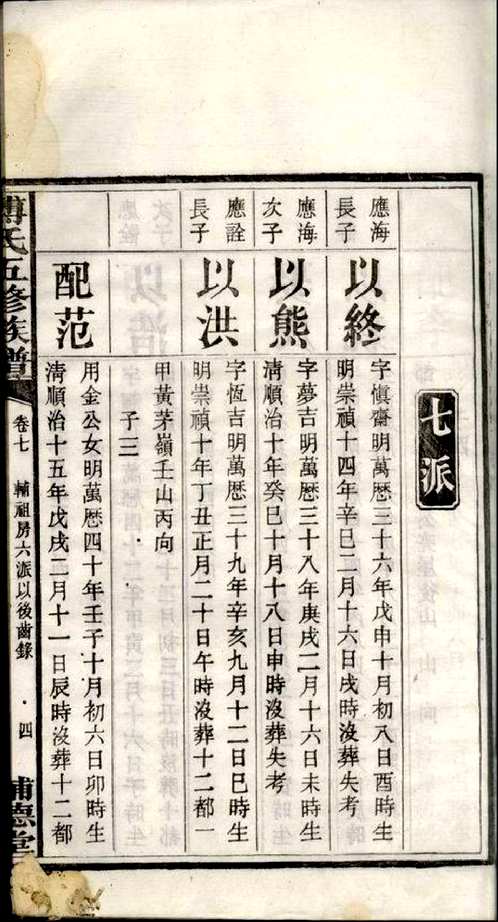 七派
應海
長子
以終
字愼齋明萬歷三十六年戊申十月初八日酉時生
明崇禎十四年辛巳二月十六日戌時沒葬失考
應海
次子
以熊
字夢吉明萬歷三十八年庚戌二月十六日未時生
淸順治十年癸巳十月十八日申時沒葬失考
應詮
長子
以洪
字恆吉明萬歷三十九年辛亥九月十二日巳時生
明崇禎十年丁丑正月二十日午時沒葬十二都一
甲黃茅嶺壬山丙向
子三
配范
用金公女明萬歷四十年壬子十月初六日卯時生
淸順治十五年戊戌二月十一日辰時沒葬十二都
氏五修族譜
卷七 輔祖房六派以後齒錄 四
德堂